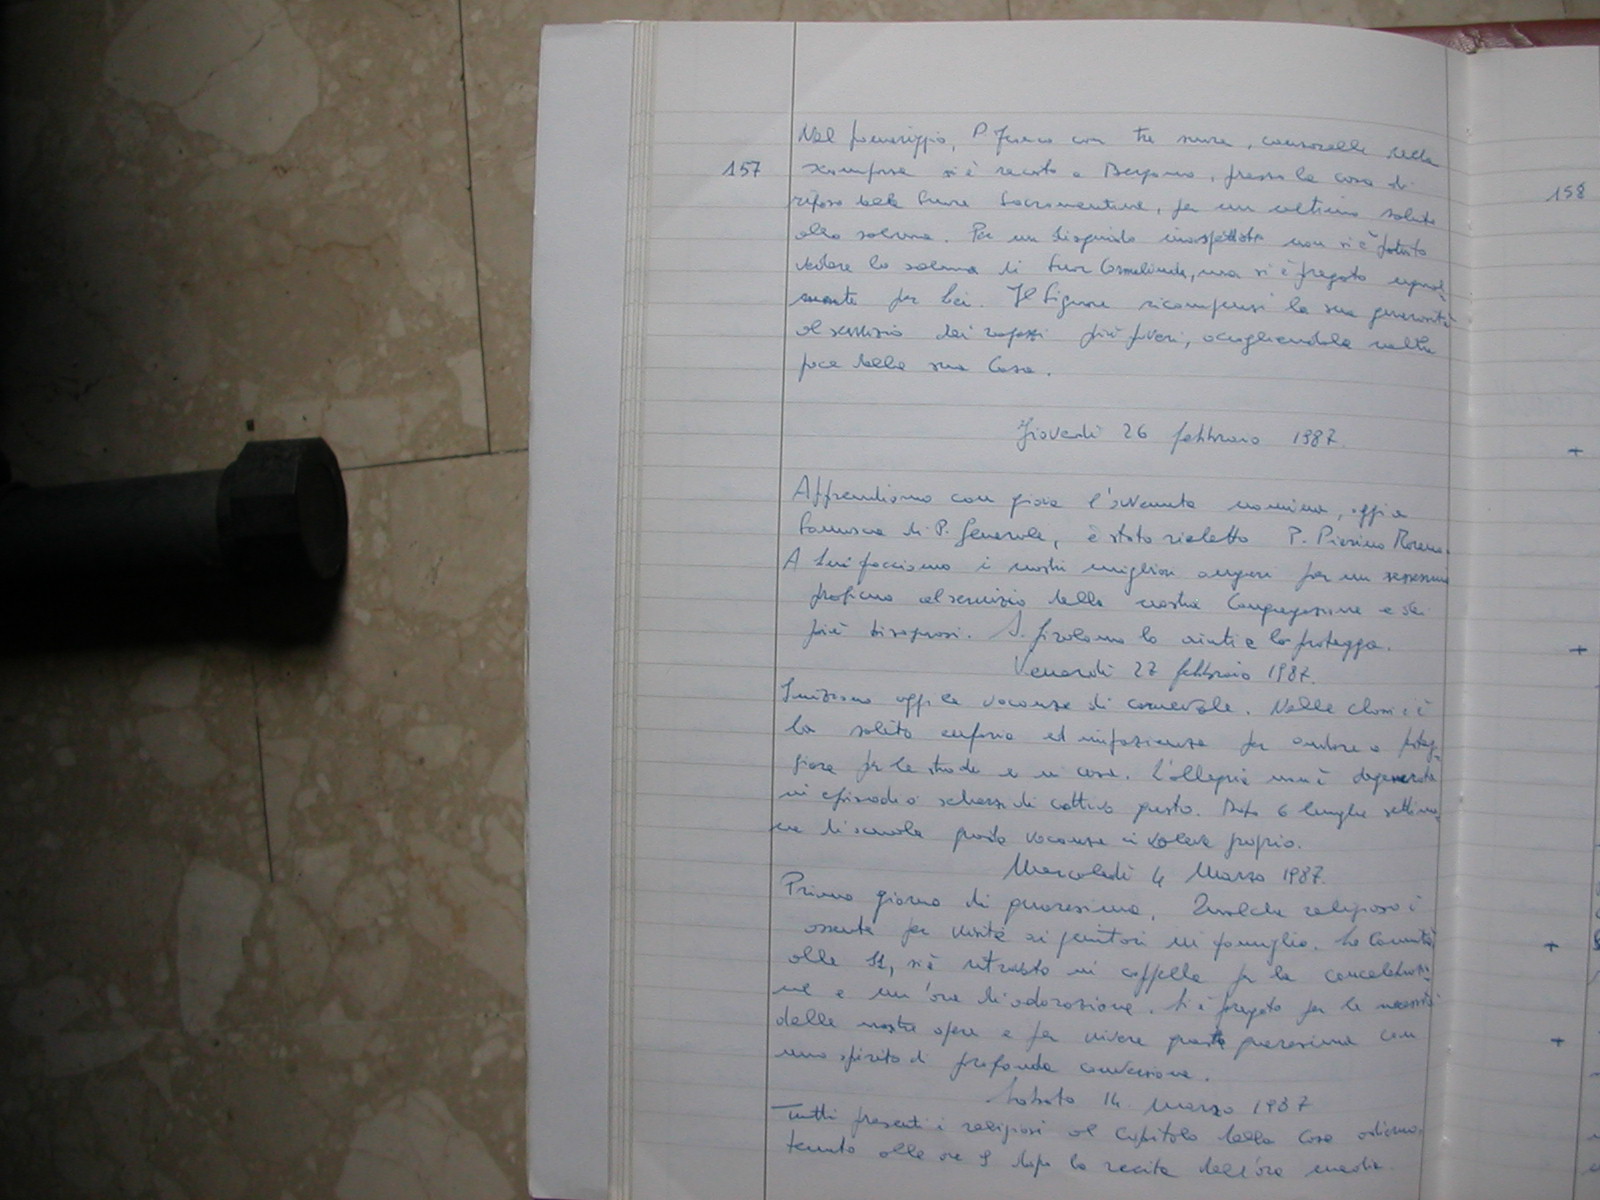 Nel pomeriggio, P. Franco con tre suore, consorelle della
157
scomparsa si è recato a Bergamo, presso la casa di
158
riposo delle Suore Sacramentine, per un ultimo saluto
alla salma. Per un disguido inaspettato non si è potuto
vedere la salma di Suor Ermelinda, ma si è pregato ugual-
mente per Lei. Il Signore ricompensi la sua generosità
al servizio dei ragazzi più poveri, accogliendola nella
pace della sua Casa.
Giovedì 26 febbraio 1987.
Apprendiamo con gioia l'avvenuta nomina, oggi a
Somasca di P. Generale, è stato rieletto P. Pierino Moreno.
A Lui facciamo i nostri migliori auguri per un sessennio
proficuo al servizio della nostra Congregazione e dei
più bisognosi. S. Girolamo lo aiuti e lo protegga.
Venerdì 27 febbraio 1987.
Iniziano oggi le vacanze di carnevale. Nelle classi c'è
la solita euforia ed impazienza per andare a festeg-
giare per le strade e in casa. L'allegria non è degenerata
in episodi o scherzi di cattivo gusto. Dopo 6 lunghe settima-
ne di scuola queste vacanze ci volevano proprio.
Mercoledì 4 Marzo 1987.
Primo giorno di quaresima. Qualche religioso è
assente per visite ai genitori in famiglia. La Comunità
alle 11, si è ritrovata in cappella per la concelebrazio-
ne e un'ora di adorazione. Si è pregato per le necessità
delle nostre opere e per vivere questa quaresima con
uno spirito di profonda conversione.
Sabato 14 marzo 1987
Tutti presenti i religiosi al Capitolo della Casa odierno,
tenuto alle ore 9 dopo la recita dell'ora media.